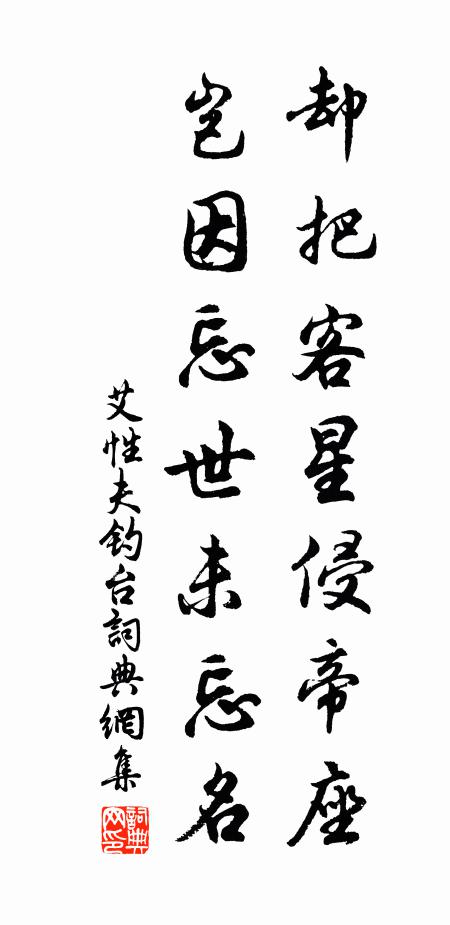 却把客星侵帝座
岂因忘世未忘名
艾性夫钓台詞典網集
詞典网印